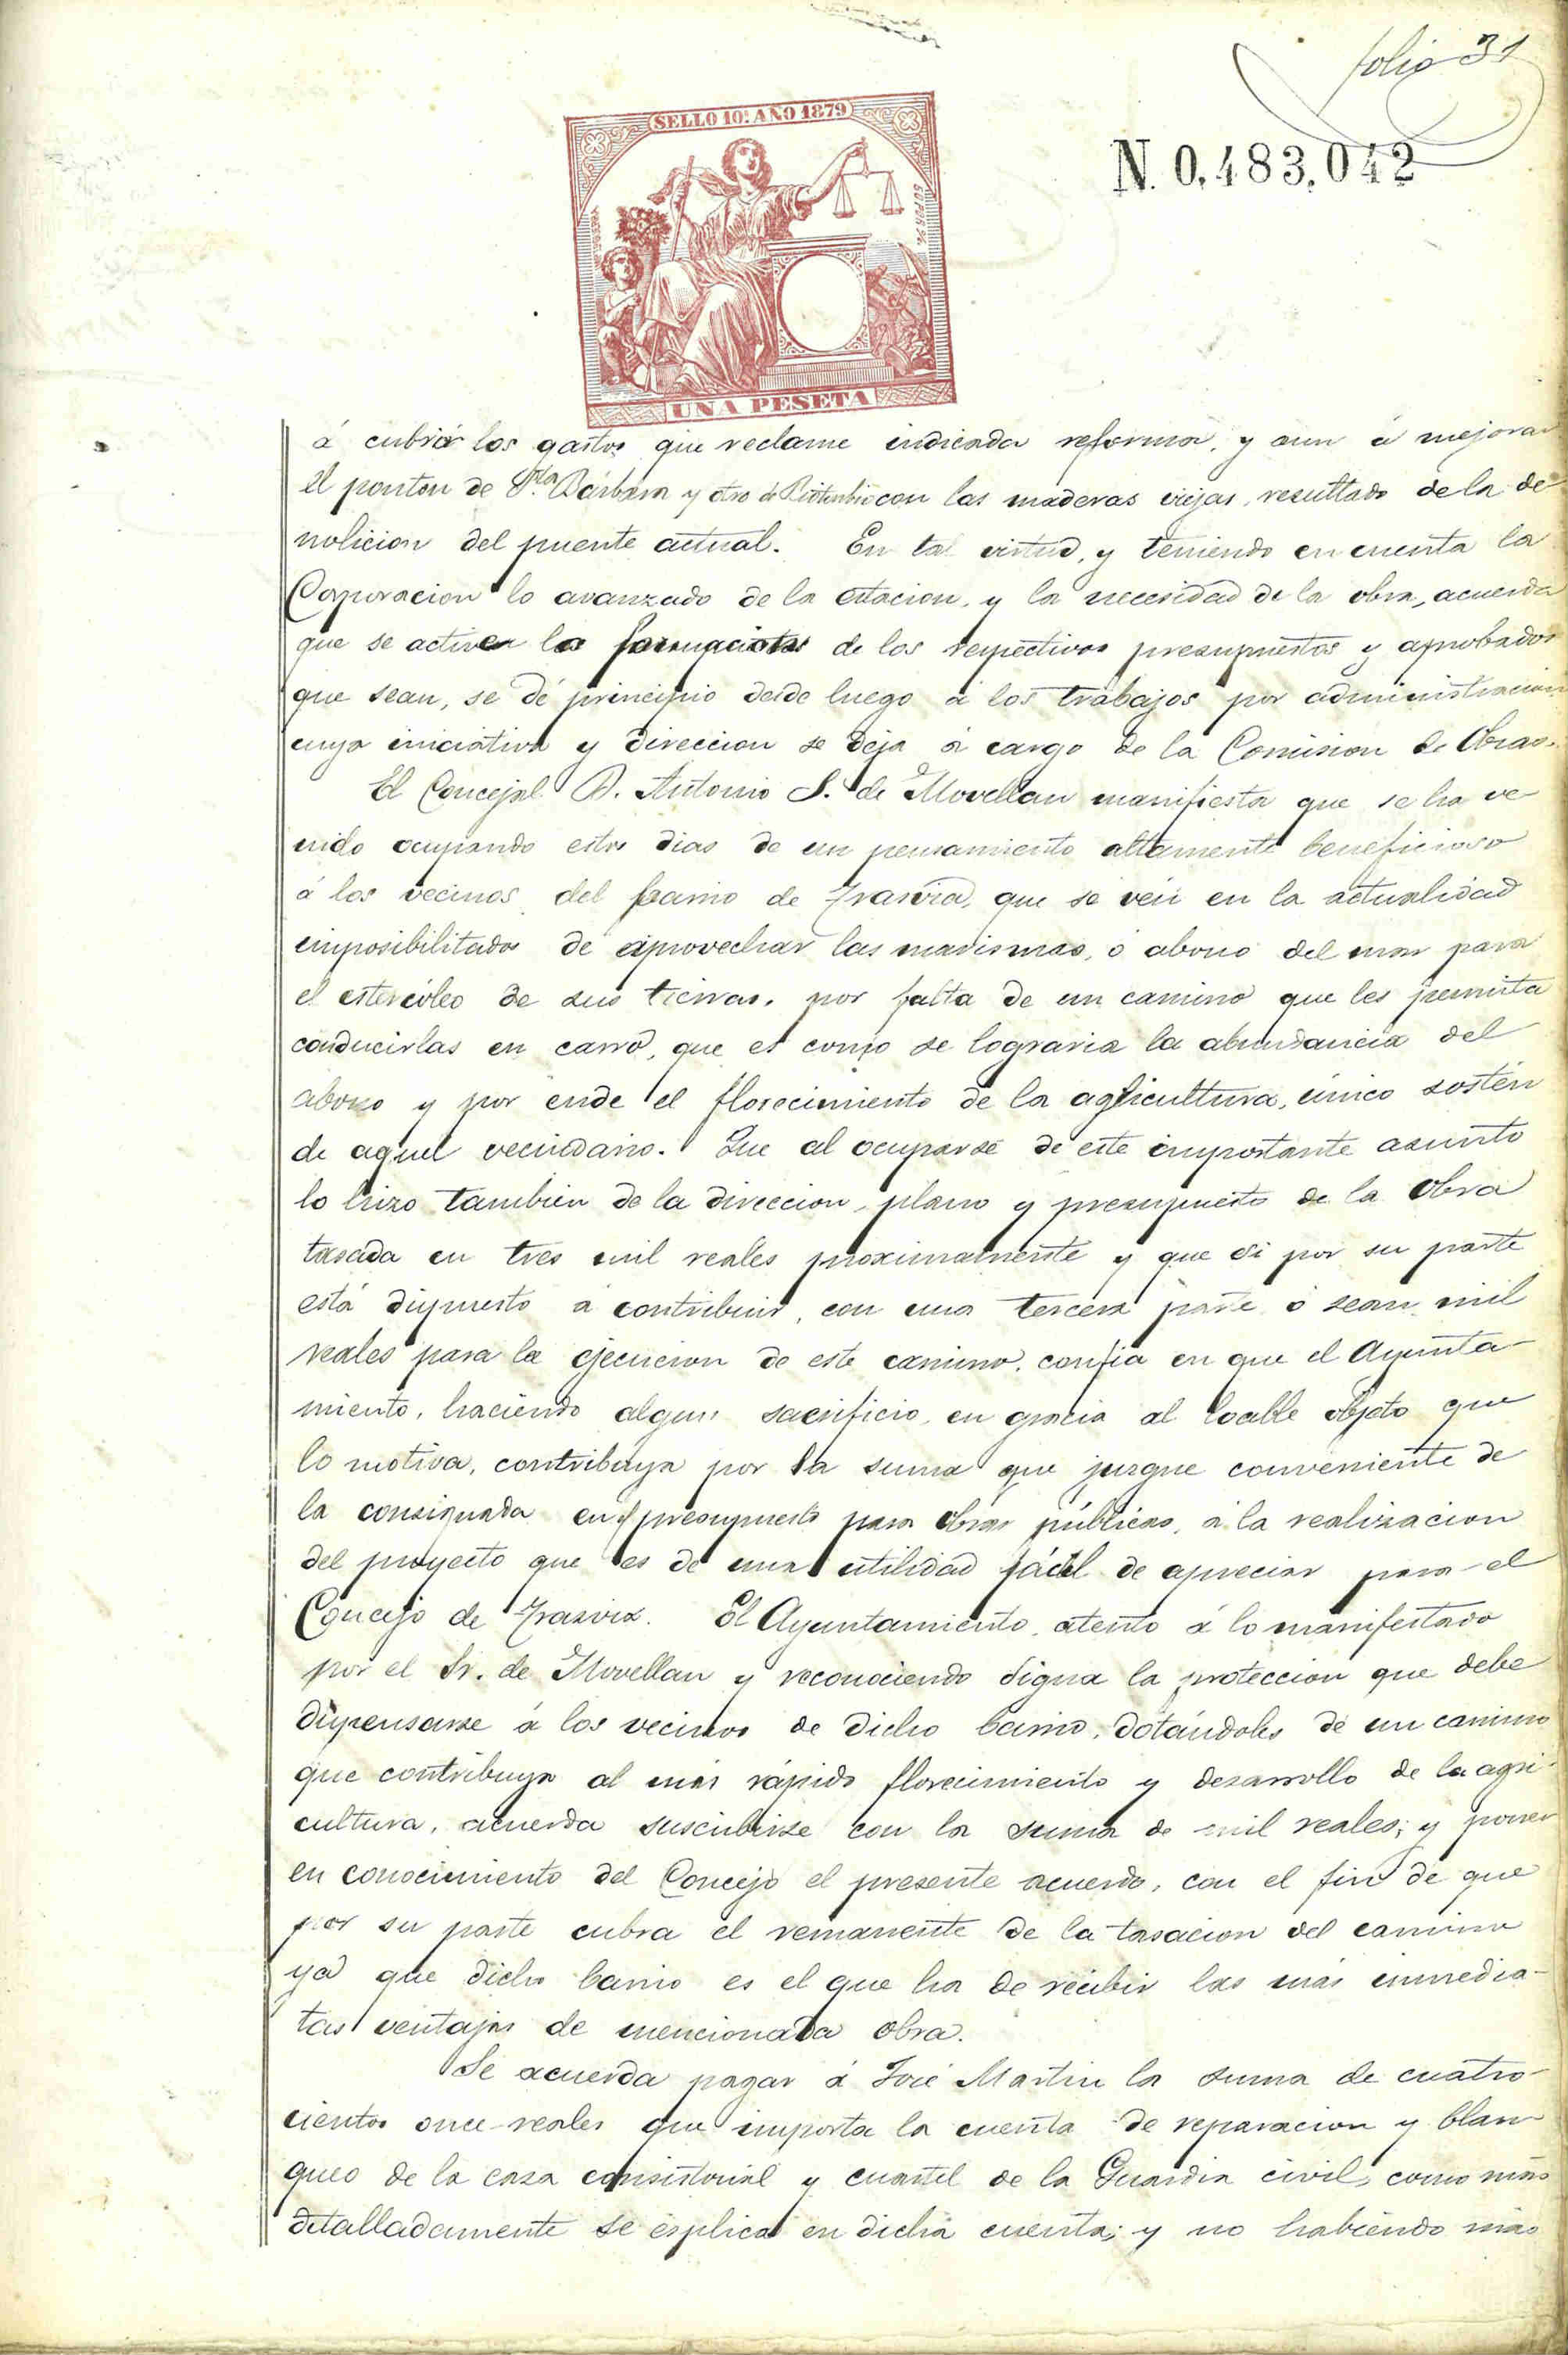 folio 31
SELLO 10.º AÑO 1879
N. 0,483,042
UNA PESETA
á cubrir los gastos que reclame indicada reforma, y aun á mejorar
el ponton de Sta Bárbara y otro de con las maderas viejas, resultado de la de-
molicion del puente actual. En tal virtud, y teniendo en cuenta la
Corporacion lo avanzado de la estacion, y la necesidad de la obra, acuerda
que se active la formacion de los respectivos presupuestos y aprobados
que sean, se dé principio desde luego á los trabajos por administracion
cuya iniciativa y direccion se deja á cargo de la Comision de Obras.
El Concejal D. Antonio S. de Movellan manifiesta que se ha ve-
nido ocupando estos dias de un pensamiento altamente beneficioso
á los vecinos del barrio de Trasvia, que se ven en la actualidad
imposibilitados de aprovechar las marismas, ó abono del mar para
el estercóleo de sus tierras, por falta de un camino que les permita
conducirlas en carro, que es como se lograria la abundancia del
abono y por ende el florecimiento de la agricultura, único sostén
de aquel vecindario. Que al ocuparse de este importante asunto
lo hizo tambien de la direccion, plano y presupuesto de la obra
tasada en tres mil reales proximamente y que si por su parte
está dispuesto á contribuir, con una tercera parte ó sean mil
reales para la ejecucion de este camino, confia en que el Ayunta-
miento, haciendo algun sacrificio, en gracia al loable objeto que
lo motiva, contribuya por la suma que juzgue conveniente de
la consignada en presupuesto para obras públicas, á la realizacion
del proyecto que es de una utilidad fácil de apreciar para el
Concejo de Trasvia. El Ayuntamiento, atento á lo manifestado
por el Sr. de Movellan y reconociendo digna la proteccion que debe
dispensarse á los vecinos de dicho barrio, dotándoles de un camino
que contribuya al más rápido florecimiento y desarrollo de la agri-
cultura, acuerda suscribirse con la suma de mil reales; y poner
en conocimiento del Concejo el presente acuerdo, con el fin de que
por su parte cubra el remanente de la tasacion del camino
ya que dicho barrio es el que ha de recibir las más inmedia-
tas ventajas de mencionada obra.
Se acuerda pagar á José Martin la suma de cuatro-
cientos once reales que importa la cuenta de reparacion y blan-
queo de la casa consistorial y cuartel de la Guardia civil, como más
detalladamente se esplica en dicha cuenta; y no habiendo más